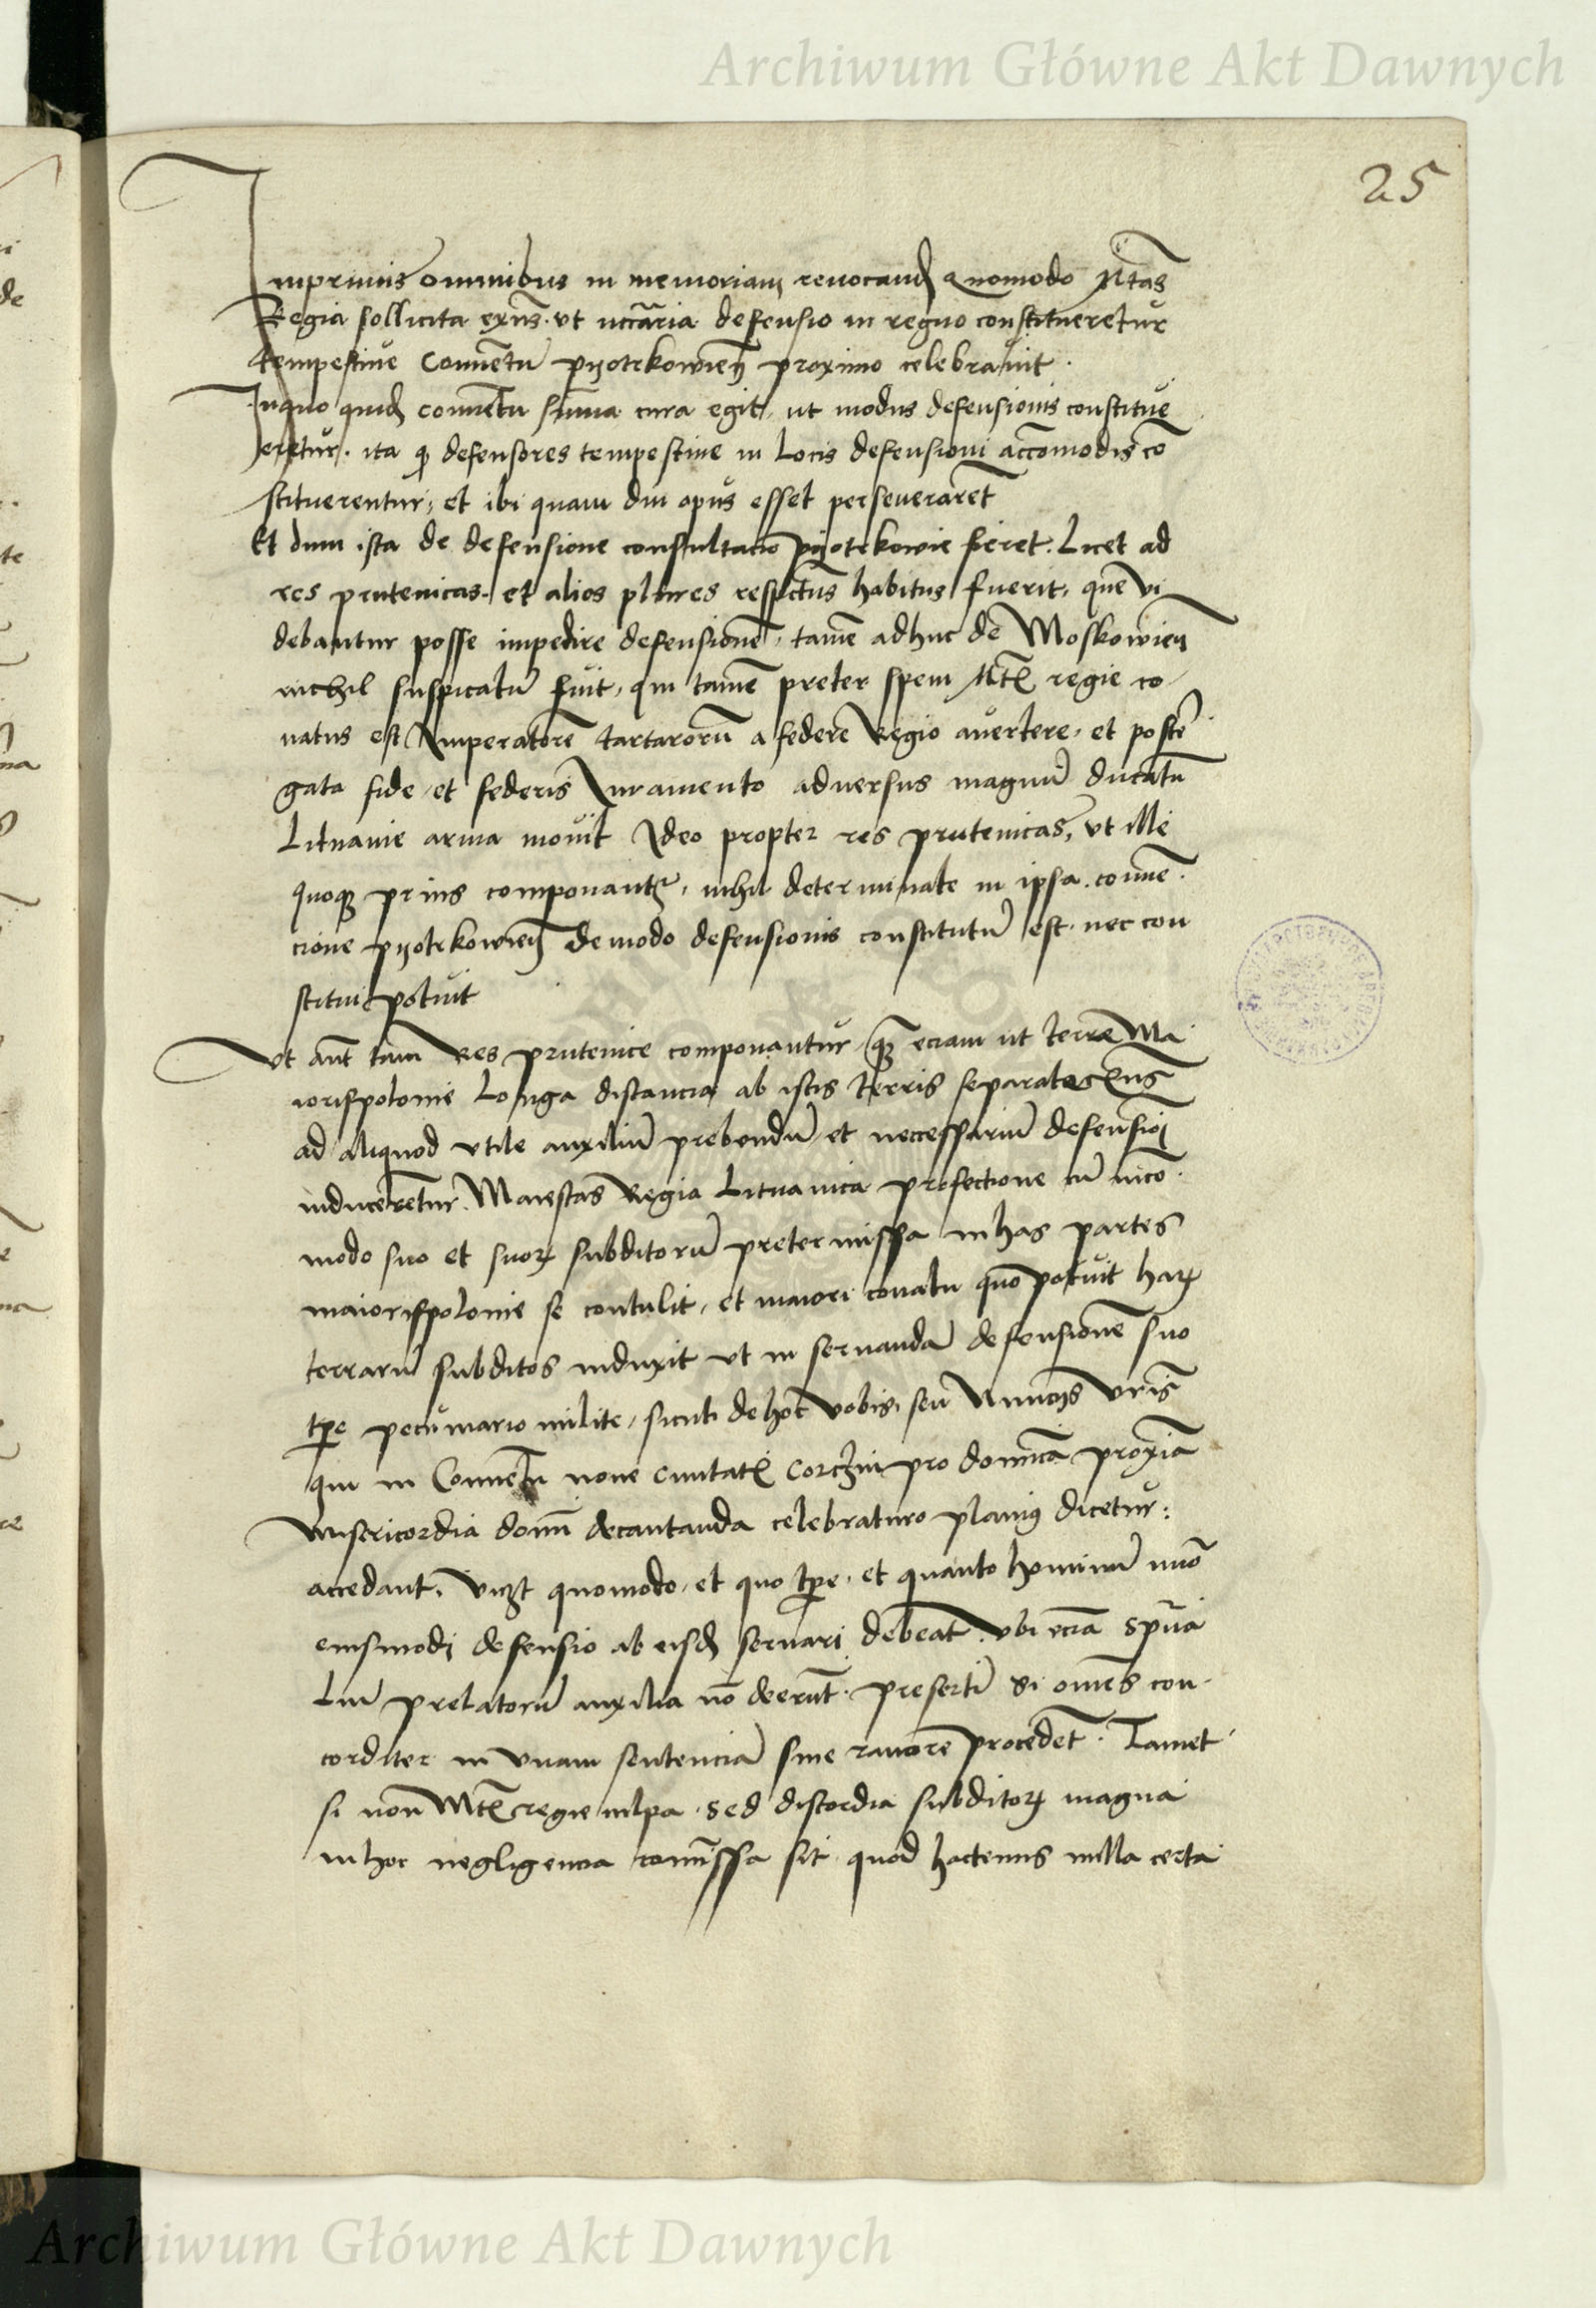 Archiwum Główne Akt Dawnych
25
Inprimis omnibus in memoriam revocand quomodo Mtas
Regia sollicita exns. ut nccaria defensio in regno constitueretur
tempestive Conventu pyotrkowien proximo celebravit.
Inquo quid conventu summa cura egit, ut modus defensionis constitue
eretur. ita q defensores tempestive in Locis defensioni accomodis co
stituerentur, et ibi quam diu opus esset perseveraret
Et dum ista de defensione consultatio pyotrkowie fieret. Licet ad
res prutenicas. et alios plures respectus habitus fuerit, que vi
debantur posse impedire defensione, tame adhuc de Moskowien
nichil suspicatu fuit, qui tame preter spem Mt regie co
natus est Imperatore tartaroru a federe Regio avertere, et poster
gata fide, et federis Iuramento adversus magnu ducatu
Lituanie arma movit Ideo propter res prutenicas, ut ille
quoq prius componant, nihil determinate in ipsa conven
cione pyotrkowien de modo defensionis constitutu est. nec con
stitui potuit
Ut aut tam Res prutenice componantur, q eciam ut terre Ma
iorispolonie Longa distancia ab istis terris separate exns
ad aliquod utile auxiliu prebendu et neccessariu defensioi
inducerentur. Maiestas Regia Lituanica profectione cu inco
modo suo et suor subditoru pretermissa in has partes
maiorispolonie se contulit, et maiori conatu quo potuit har
terraru subditos induxit ut in servanda defensione suo
tpe pecuniario milite, sicuti de hoc vobis, seu Nuncys vris
qui in Conventu nove civitat Corczin pro dominica proxia
Misericordia domi decantanda celebraturo planius dicetur:
accedant. viczt quomodo, et quo tpe, et quanto hominu nuo
eiusmodi defensio ab eisd servari debeat. ubi ecia spua
Liu prelatoru auxilia no deerunt. preserti si omnes con
corditer in unam sentencia sine rancore procedent. Tamet
si non Mt regie culpa. sed discordia subditor magna
in hoc negligencia comissa sit quod hactenus nulla certa
Archiwum Główne Akt Dawnych